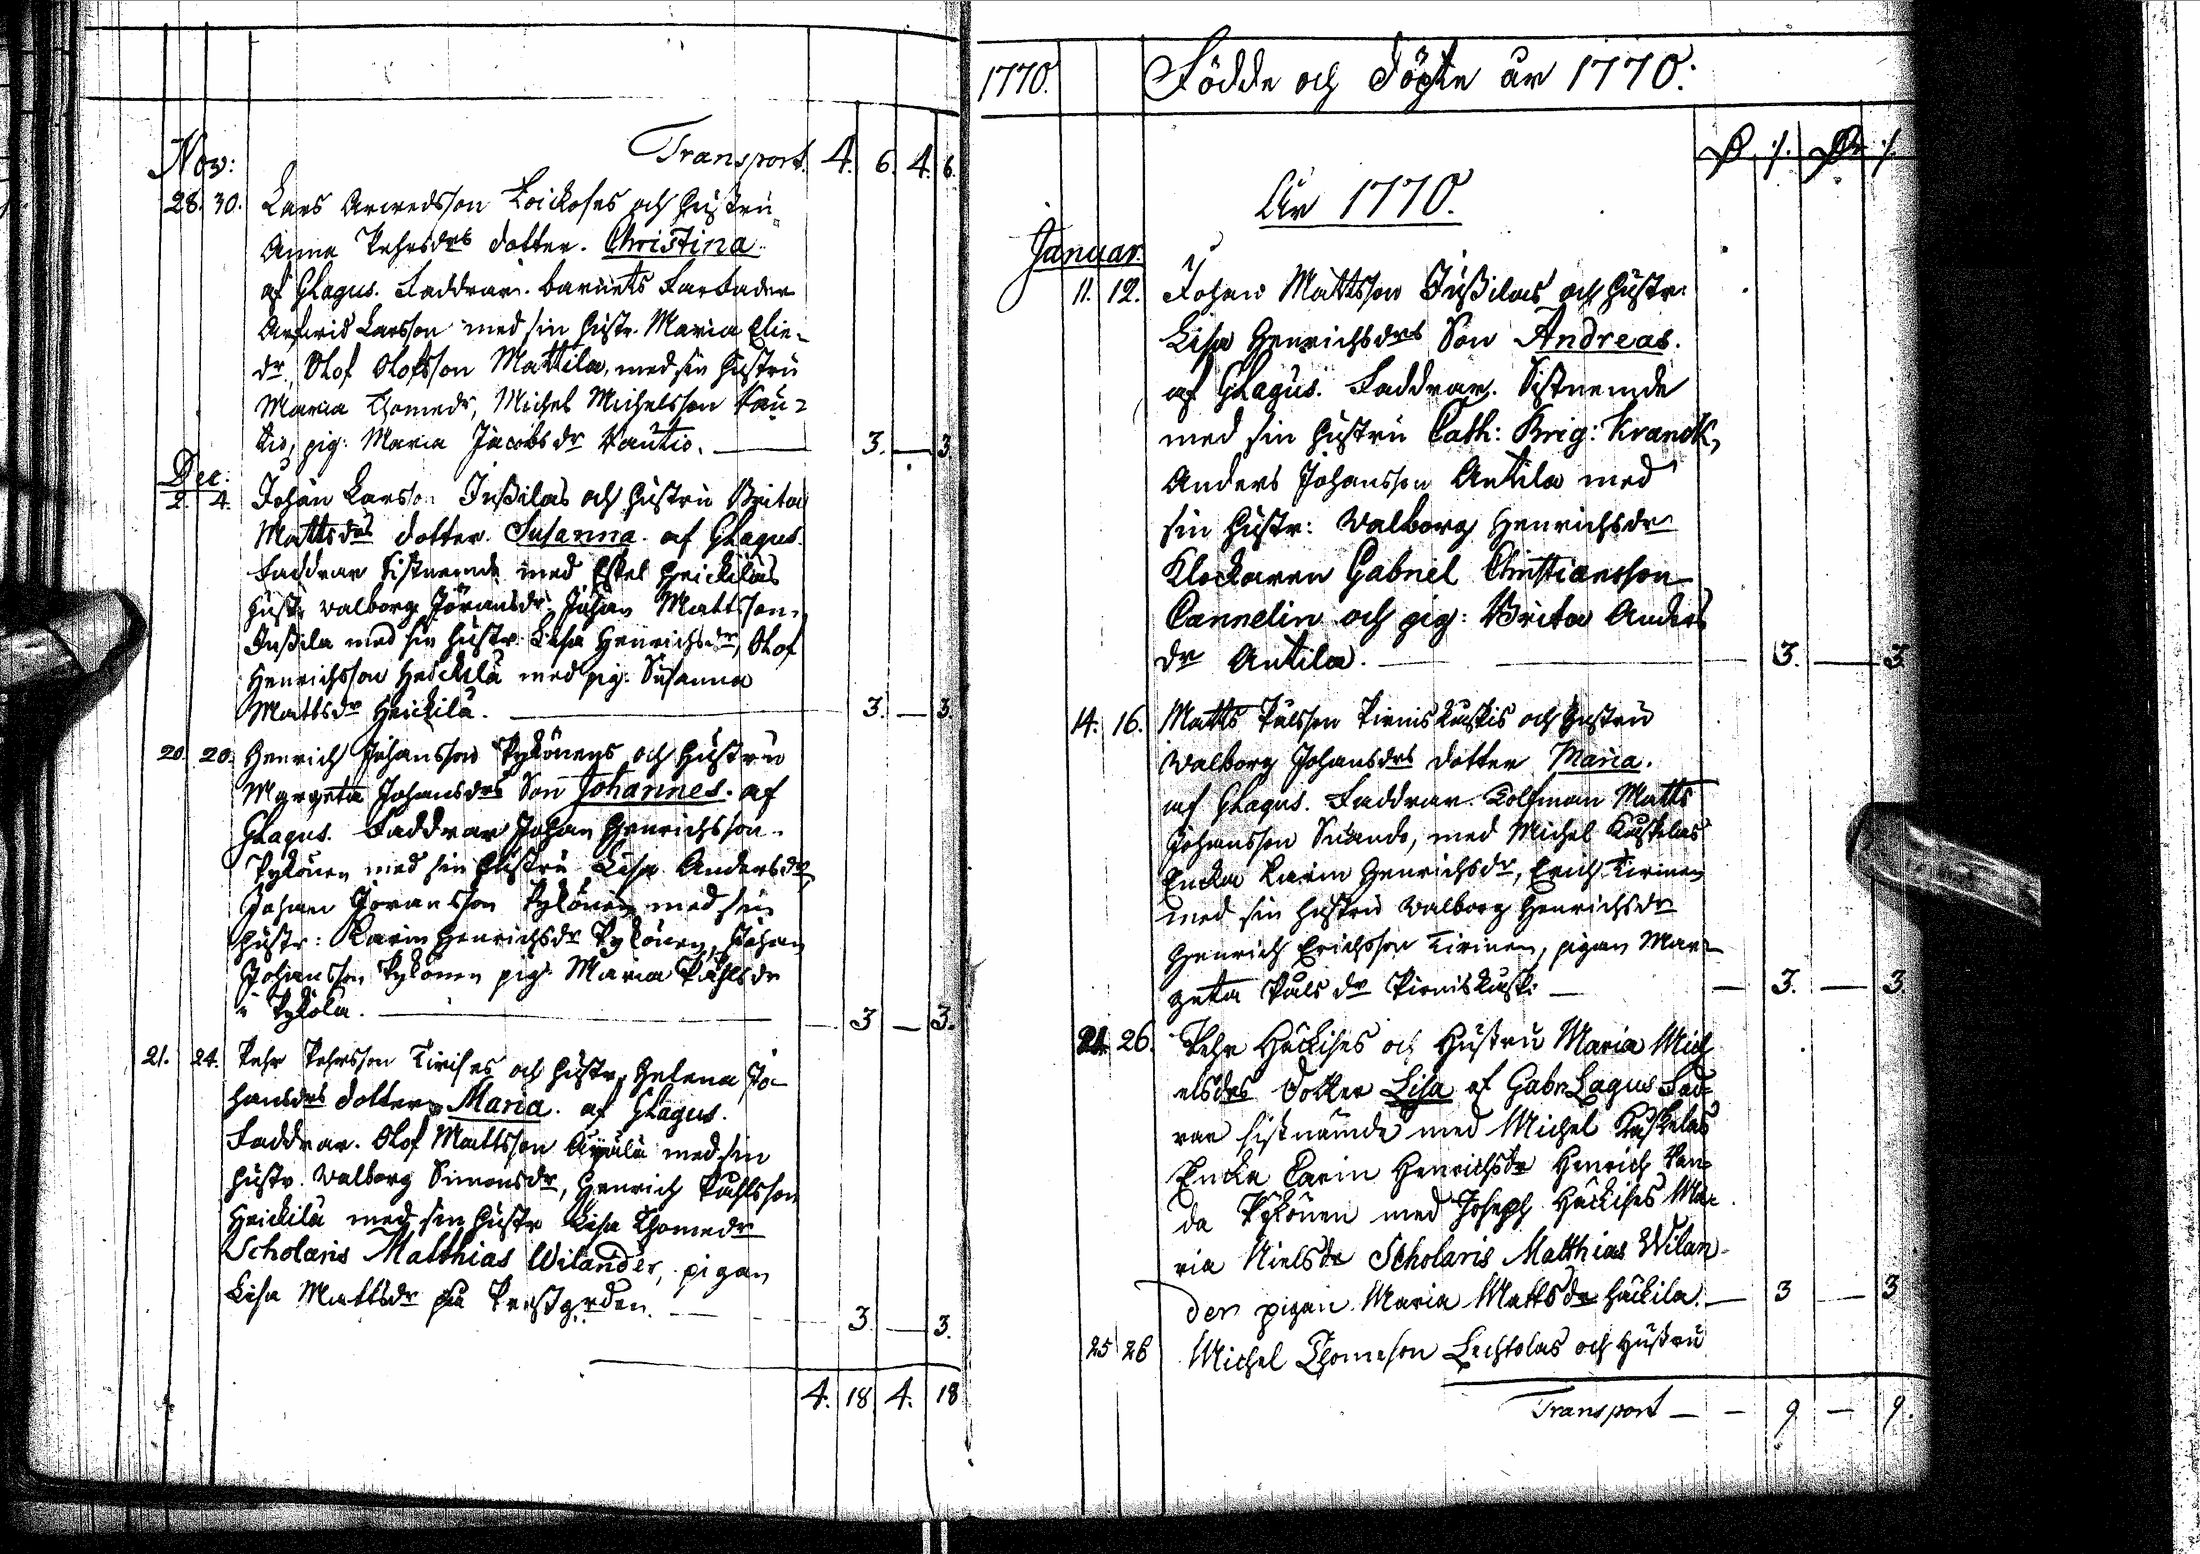 Transport. 4. 6. 4. 6.
Nov:
28. 30. Lars Arwedsson Loickoses och hustru
Anna Pehrsdrs dotter. Christina.
af GLagus. Faddrar. barnets Farfader
Arfwid Larsson med sin hustr. Maria Elie-
dr, Olof Olofsson Mattila, med sin hustru
Maria Thomedr, Michel Michelsson Kau-
tio, pig: Maria Jacobsdr Kautio. 3. — 3
Dec:
2. 4. Johan Larsson Jußilas och hustru Brita
Mattsdrs dotter. Susanna. af GLagus.
Faddrar sistnemde med Eskel Heickilas
hustr. Walborg Jöransdr, Johan Mattsson
Jußila med sin hustr. Lisa Henrichsdr, Olof
Henrichsson Heickilä med pig. Susanna
Mattsdr Heickilä. 3. — 3.
20. 20. Henrich Johansson Pykönens och hustru
Margeta Johansdrs Son Johannes. af
GLagus. Faddrar Johan Henrichsson
Pykönen med sin hustru Lisa Andersdr,
Johan Jöransson Pykönen med sin
hustr: Karin Henrichsdr Pykönen, Johan
Johansson Pykönen pig. Maria Påhlsdr
i Pyköla. — 3 — 3.
21. 24. Pehr Pehrsson Kirises och hustr. Helena Jo-
hansdrs dotter Maria. af GLagus.
Faddrar. Olof Mattsson med sin
hustr. Walborg Simonsdr, Henrich Påhlsson
Heickilä med sin hustr Lisa Thomedr
Scholaris Matthias Wilander, pigan
Lisa Mattsdr på Prestgrden. 3. — 3.
4. 18 4. 18
1770. Födde och döpte år 1770.
År 1770.
Januar.
11. 12. Johan Mattsson Jußilas och hustr.
Lisa Henrichsdrs Son Andreas.
af GLagus. Faddrar. Sistnemde
med sin hustru Cath: Brig: Kranck,
Anders Johansson Antila med
sin hustr: Walborg Henrichsdr
Klockaren Gabriel Christiansson
Cannelin och pig: Brita Anders
dr Antila. — 3. — 3
14. 16. Matts Pålsson Pirniskuskis och hustru
Walborg Johansdrs dotter Maria.
af GLagus. Faddrar. Tolfman Matts
Johansson, med Michel Kuskelas
Encka Karin Henrichsdr, Erich Kirinen
med sin hustru Walborg Henrichsdr
Henrich Erichsson Kirinen, pigan Mar-
geta Pålsdr Pirniskuski — 3. — 3.
21. 26. Pehr Häckises och Hustru Maria Mich
elsdrs Dotter Lisa af GabrLagus Fad-
rar sistnämde med Michel Kuskelas
Encka Carin Henrichsdr Henrich Pau-
da Pykönen med Joseph Häckises Ma-
ria Nielsdr Scholaris Matthias Wilan-
der pigan Maria Mattsdr Häckila. — 3 — 3
25 26 Michel Thomeson Lechtolas och Hustru
Transport — — 9 — 9.